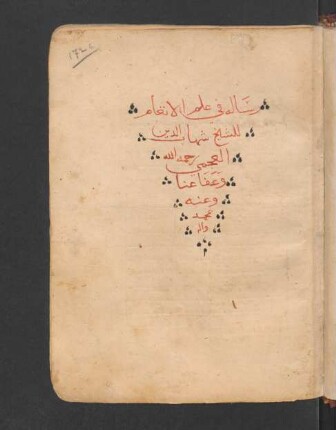 رسالة في علم الانغام
للشيخ شهاب الدين
العجمي رحمه الله
وعفا عنا
وعنه
بمحمد
واله
م